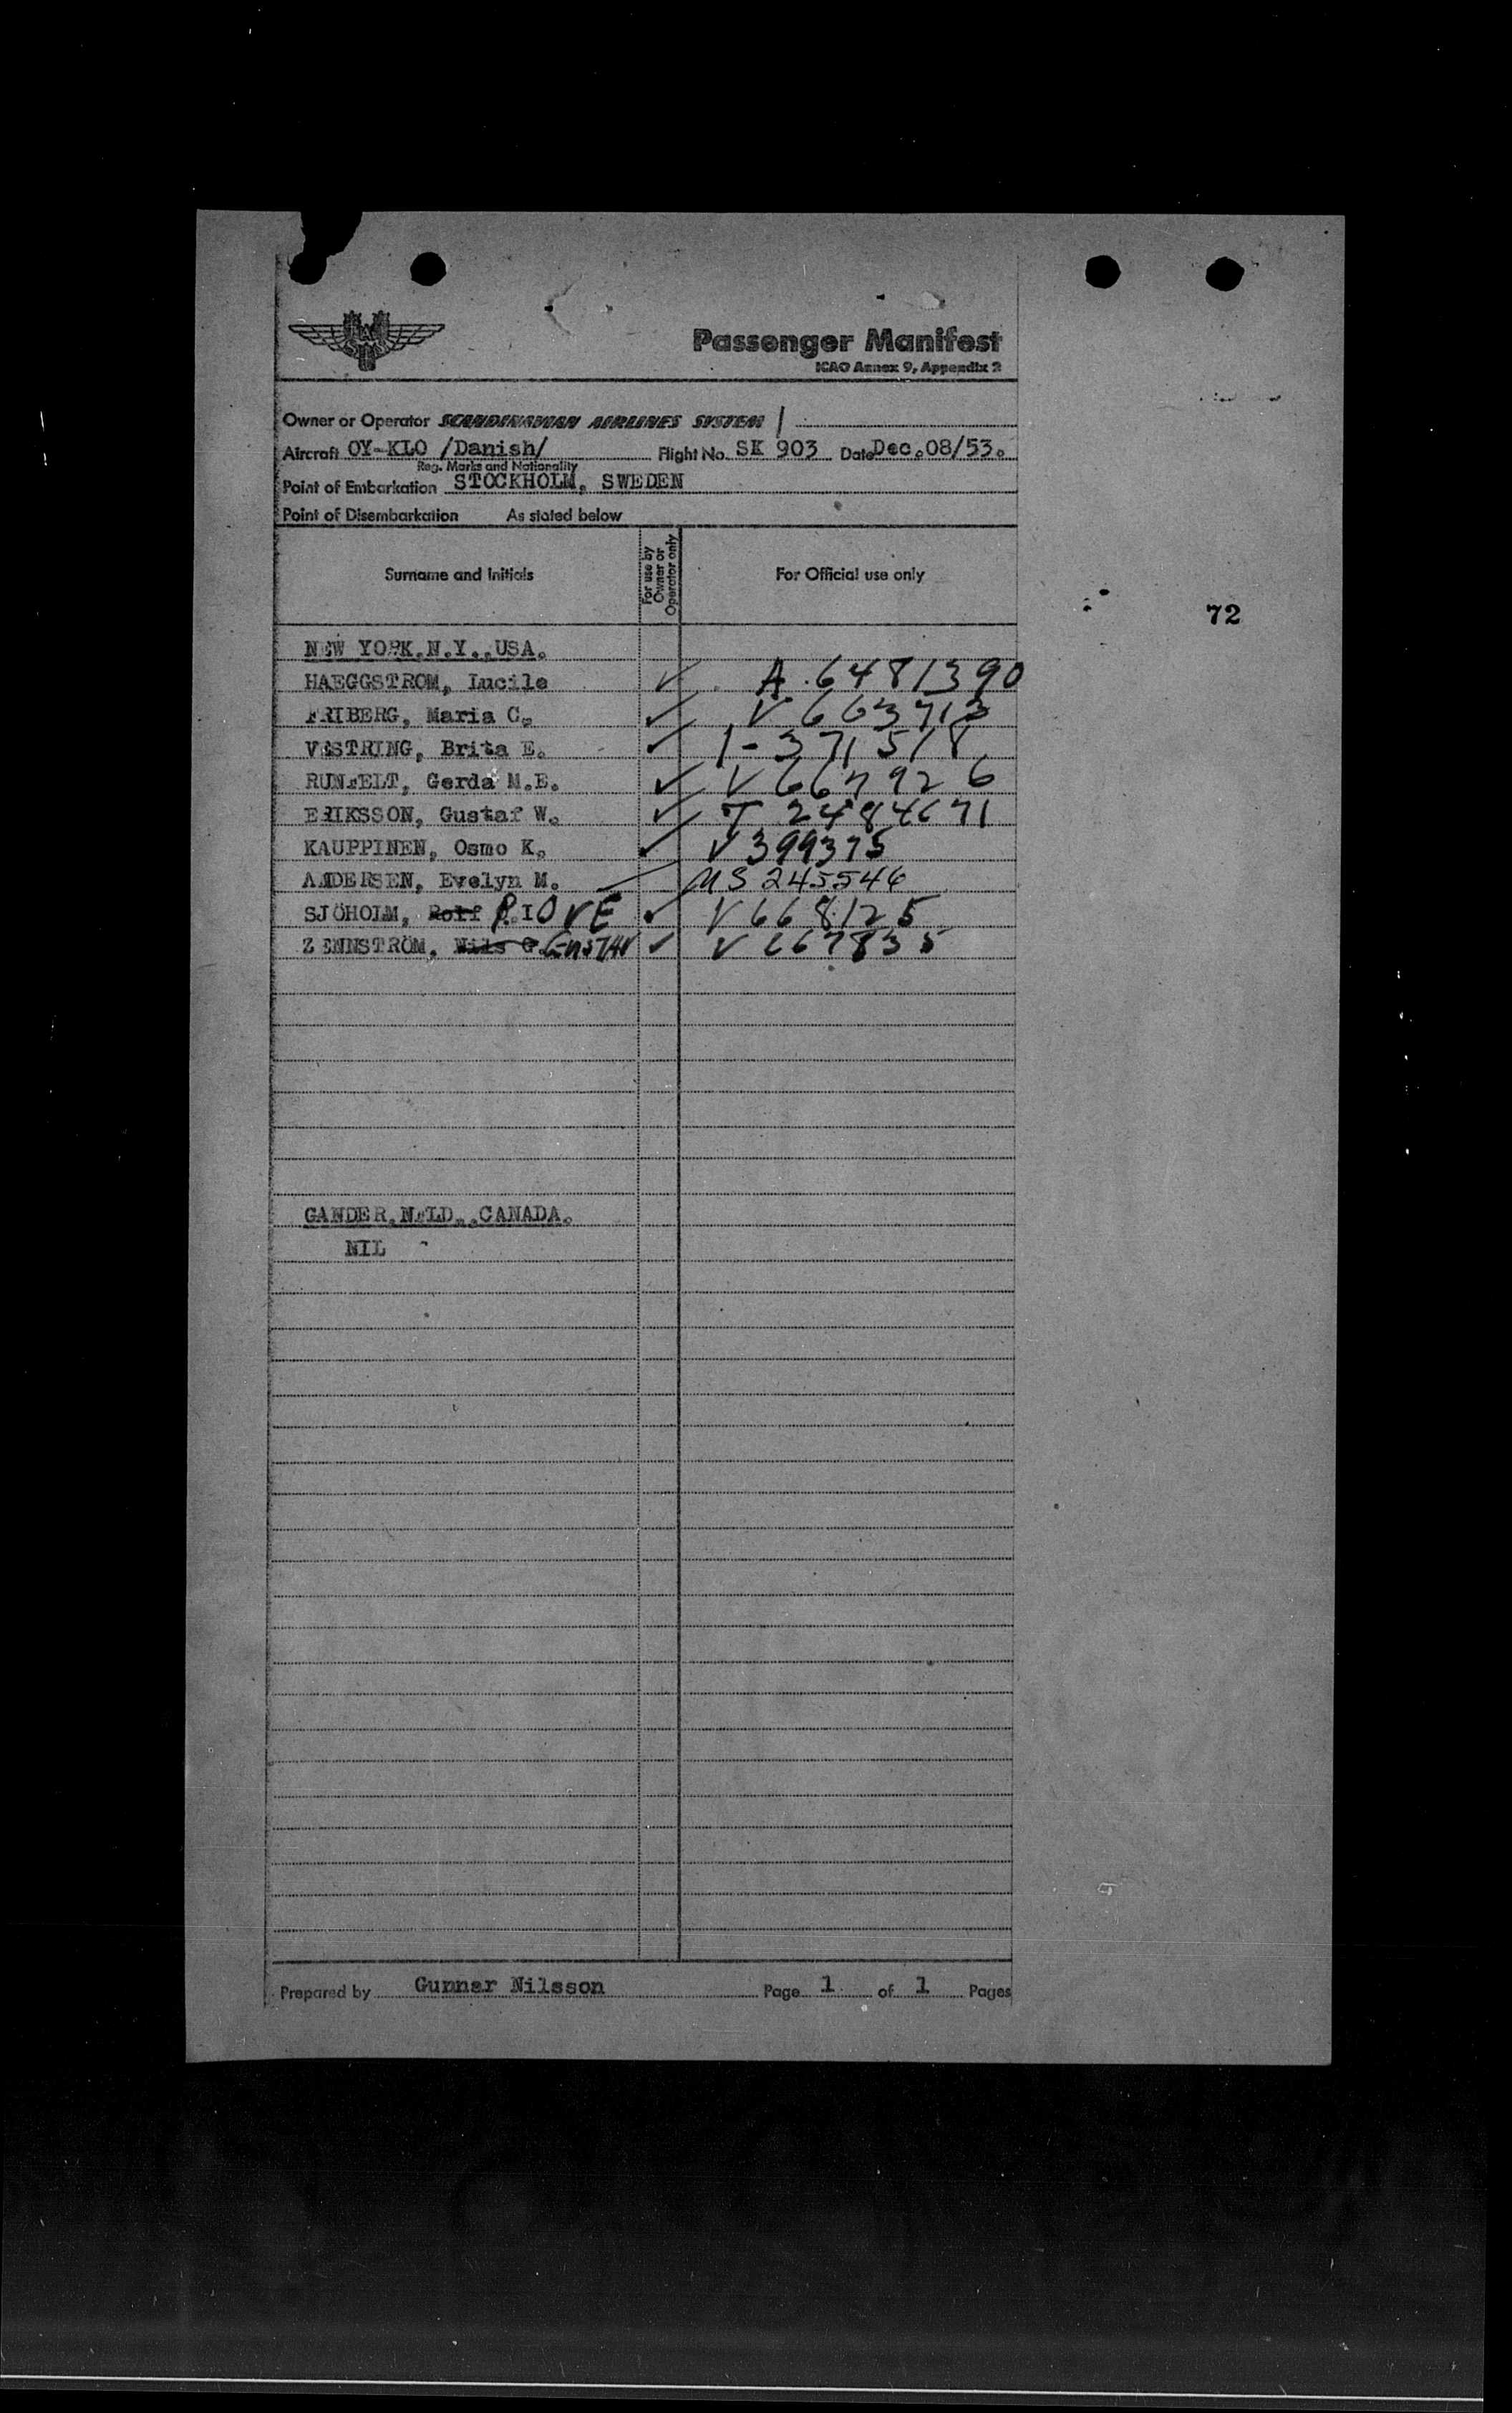 Passenger Manifest
ICAO Annex 9, Appendix 2
Owner or Operator SCANDINAVIAN AIRLINES SYSTEM
Aircraft OY-KLO /Danish/ Flight No. SK 903 Date Dec.08/53.
Reg. Marks and Nationality
Point of Embarkation STOCKHOLM, SWEDEN
Point of Disembarkation As stated below
Surname and Initials For use by Owner or Operator only For Official use only
72
NEW YORK.N.Y.,USA.
HAEGGSTROM, Lucile ✓ A.6481390
FRIBERG, Maria C. ✓ V 663713
VESTRING, Brita E. ✓ 1-371518
RUNFELT, Gerda M.E. ✓ V 667926
ERIKSSON, Gustaf W. ✓ T 2484671
KAUPPINEN, Osmo K. ✓ V399375
ANDERSEN, Evelyn M. MS 245546
SJÖHOLM, Rolf P.I OVE ✓ V668125
ZENNSTRÖM, Nils G. ✓ V 667835
GANDER,NFLD.,CANADA.
NIL
Prepared by Gunnar Nilsson Page 1 of 1 Pages